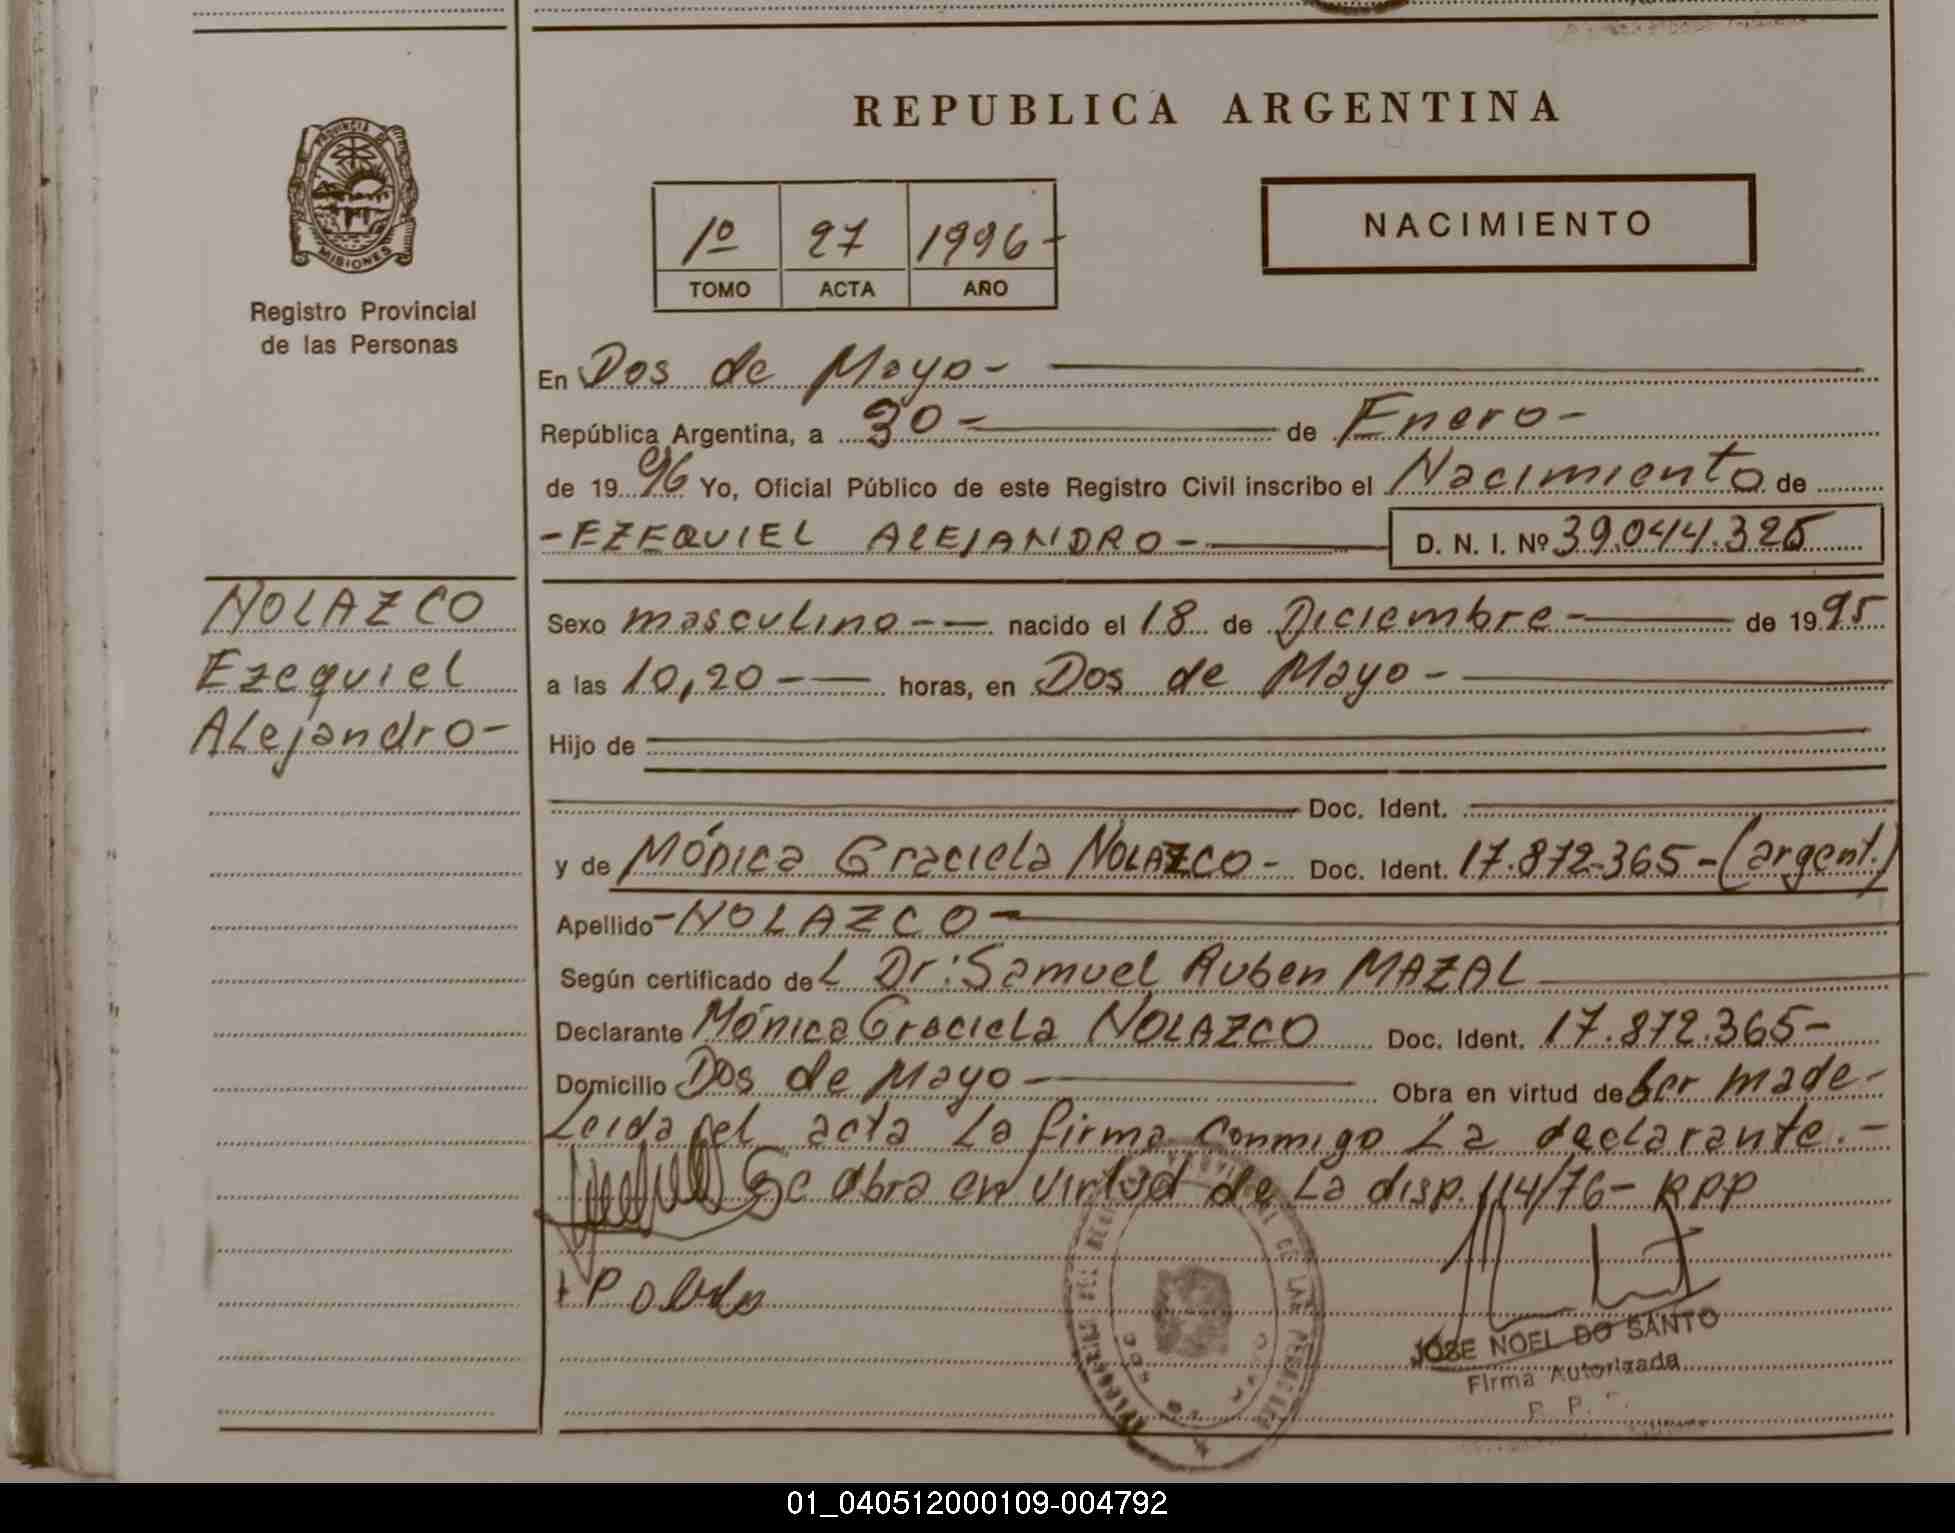 PROVINCIA DE
MISIONES
Registro Provincial
de las Personas
REPUBLICA ARGENTINA
1º 27 1996-
TOMO ACTA AÑO
NACIMIENTO
En Dos de Mayo-
República Argentina, a 30- de Enero-
de 1996 Yo, Oficial Público de este Registro Civil inscribo el Nacimiento de
-EZEQUIEL ALEJANDRO- D. N. I. Nº 39.044.325
NOLAZCO
Ezequiel
Alejandro-
Sexo masculino-- nacido el 18 de Diciembre- de 1995
a las 10,20-- horas, en Dos de Mayo-
Hijo de
Doc. Ident.
y de Mónica Graciela NOLAZCO- Doc. Ident. 17.872.365-(argent.)
Apellido-NOLAZCO-
Según certificado deL Dr: Samuel Ruben MAZAL
Declarante Mónica Graciela NOLAZCO Doc. Ident. 17.872.365-
Domicilio Dos de Mayo- Obra en virtud de Ser madre-
Leida el acta La firma Conmigo La declarante.-
Se obra en virtud de La disp. 114/76- RPP
JOSE NOEL DO SANTO
Firma Autorizada
01_040512000109-004792